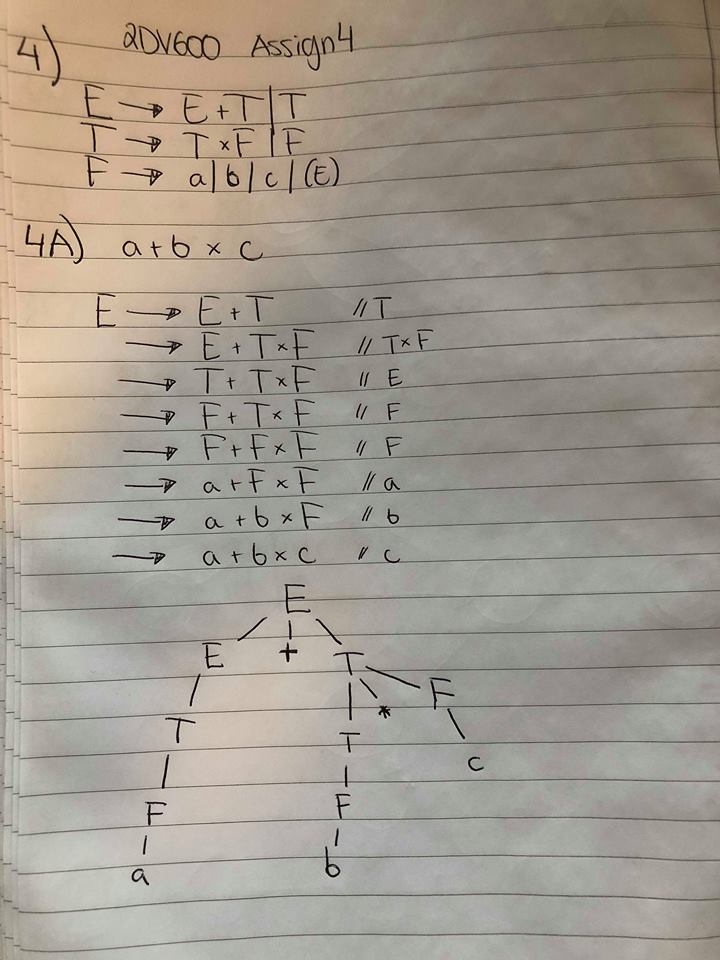 2DV600 Assign4
4)
E → E + T | T
T → T × F | F
F → a | b | c | (E)
4A) a + b × c
E → E + T // T
→ E + T × F // T × F
→ T + T × F // E
→ F + T × F // F
→ F + F × F // F
→ a + F × F // a
→ a + b × F // b
→ a + b × c // c
E
E + T
T T * F
F F c
a b